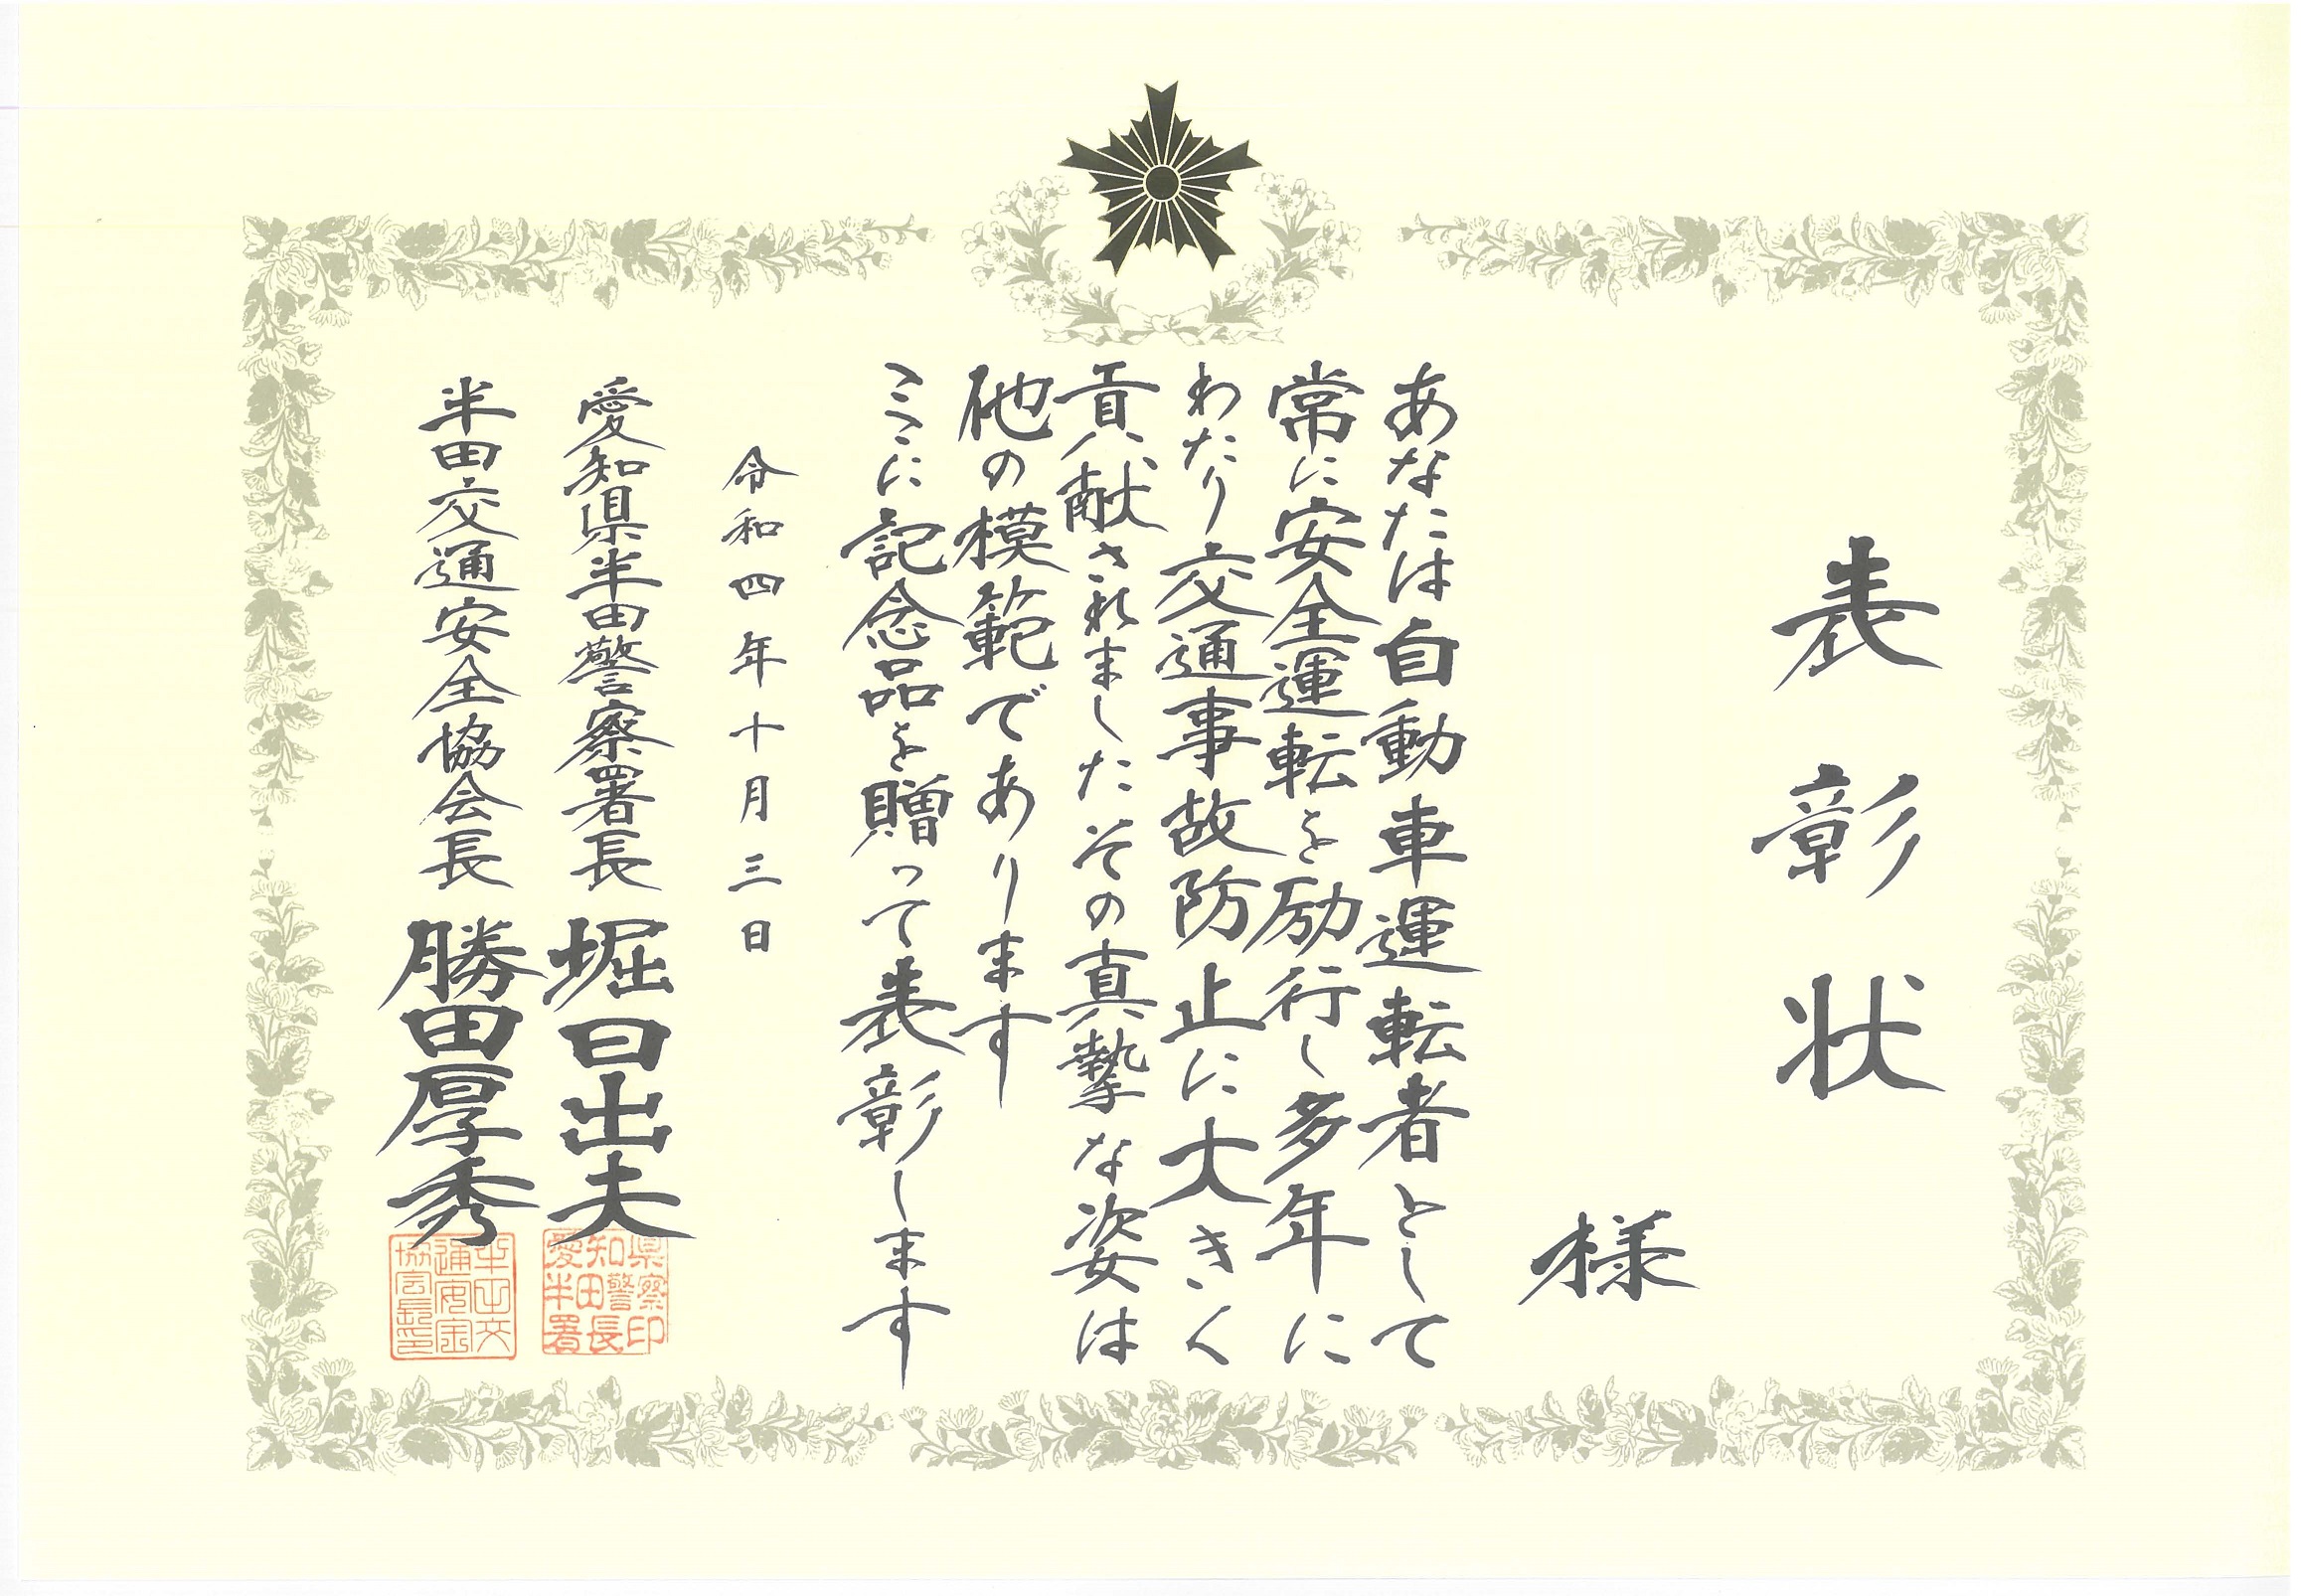 表彰状
様
あなたは自動車運転者として
常に安全運転を励行し多年に
わたり交通事故防止に大きく
貢献されましたその真摯な姿は
他の模範であります
ここに記念品を贈って表彰します
令和四年十月三日
愛知県半田警察署長 堀日出夫
愛知県
半田警察
署長印
半田交通安全協会長 勝田厚秀
半田交
通安全
協会長印